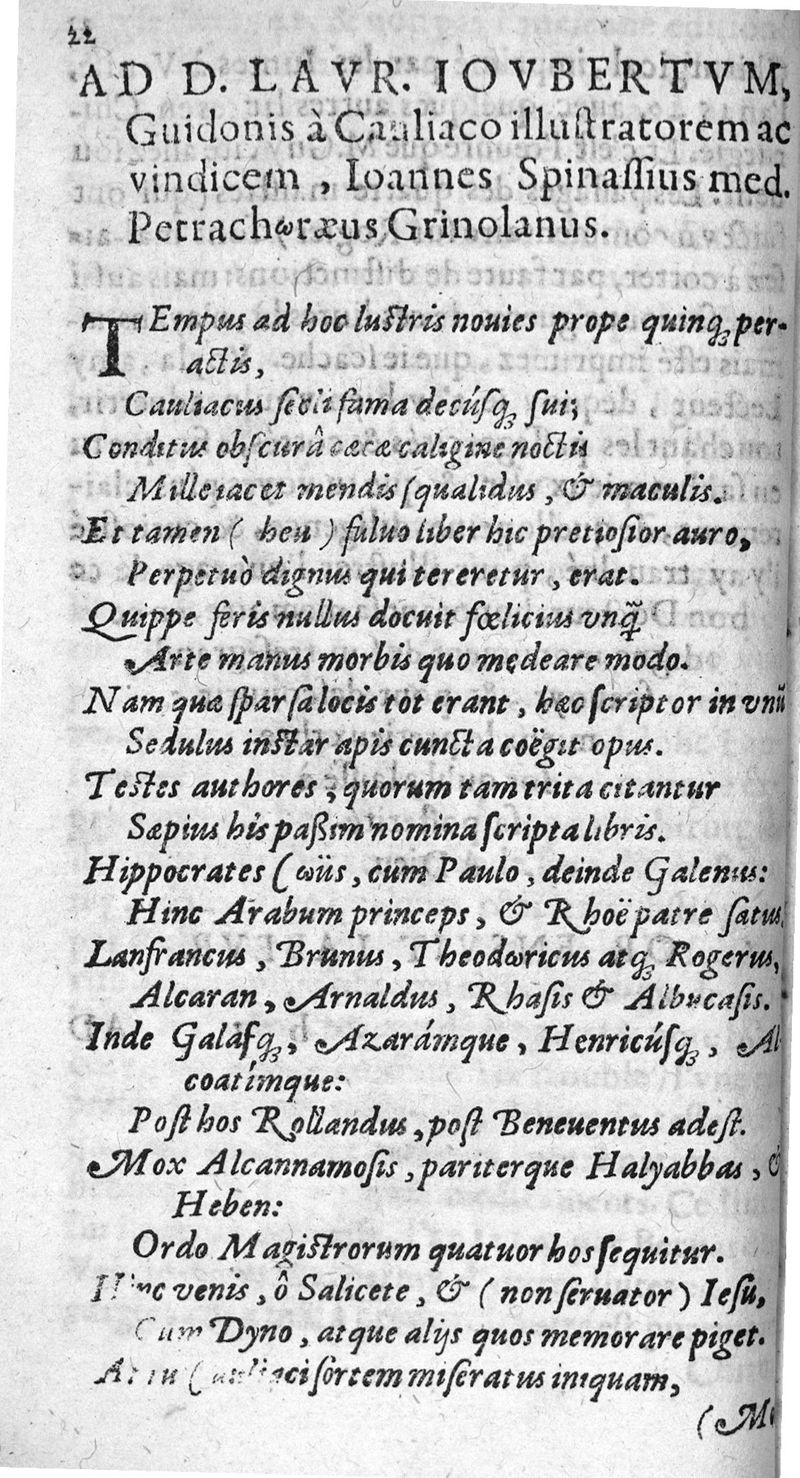 22
AD D. LAVR. IOVBERTVM,
Guidonis à Cauliaco illustratorem ac
vindicem, Ioannes Spinassius med.
Petrachωræus Grinolanus.
TEmpus ad hoc lustris nouies prope quinqꝫ per-
actis,
Cauliacus secli fama decúsqꝫ sui;
Conditus obscurâ cæcæ caligine noctis
Mille iacet mendis squalidus, & maculis.
Et tamen ( heu ) fuluo liber hic pretiosior auro,
Perpetuò dignus qui tereretur, erat.
Quippe feris nullus docuit fœlicius vnq̃
Arte manus morbis quo medeare modo.
Nam quæ sparsa locis tot erant, hæc scriptor in vnũ
Sedulus instar apis cuncta coëgit opus.
Testes authores, quorum tam trita citantur
Sæpius his paßim nomina scripta libris.
Hippocrates Cωüs, cum Paulo, deinde Galenus:
Hinc Arabum princeps, & Rhoë patre satus,
Lanfrancus, Brunus, Theodωricus atqꝫ Rogerus,
Alcaran, Arnaldus, Rhasis & Albucasis.
Inde Galáfqꝫ, Azarámque, Henricúsqꝫ, Al
coatímque:
Post hos Rollandus, post Beneuentus adest.
Mox Alcannamosis, pariterque Halyabbas, &
Heben:
Ordo Magistrorum quatuor hos sequitur.
Hinc venis, ô Salicete, & ( non seruator ) Iesu,
Cum Dyno, atque alijs quos memorare piget.
Cauliaci sortem miseratus iniquam,